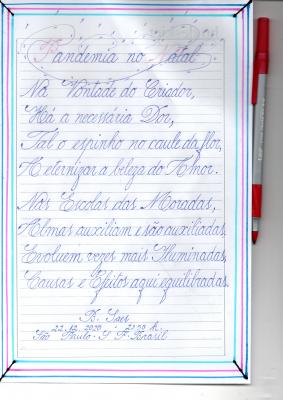 Pandemia no Natal
Na Vontade do Criador,
Há a necessária Dor,
Tal o espinho no caule da flor,
A eternizar a beleza do Amor.
Nas Escolas das Moradas,
Almas auxiliam e são auxiliadas,
Evoluem vezes mais Iluminadas,
Causas e Efeitos aqui equilibradas.
B. Saes
22.12.2020 h.
São Paulo - S P - Brasil